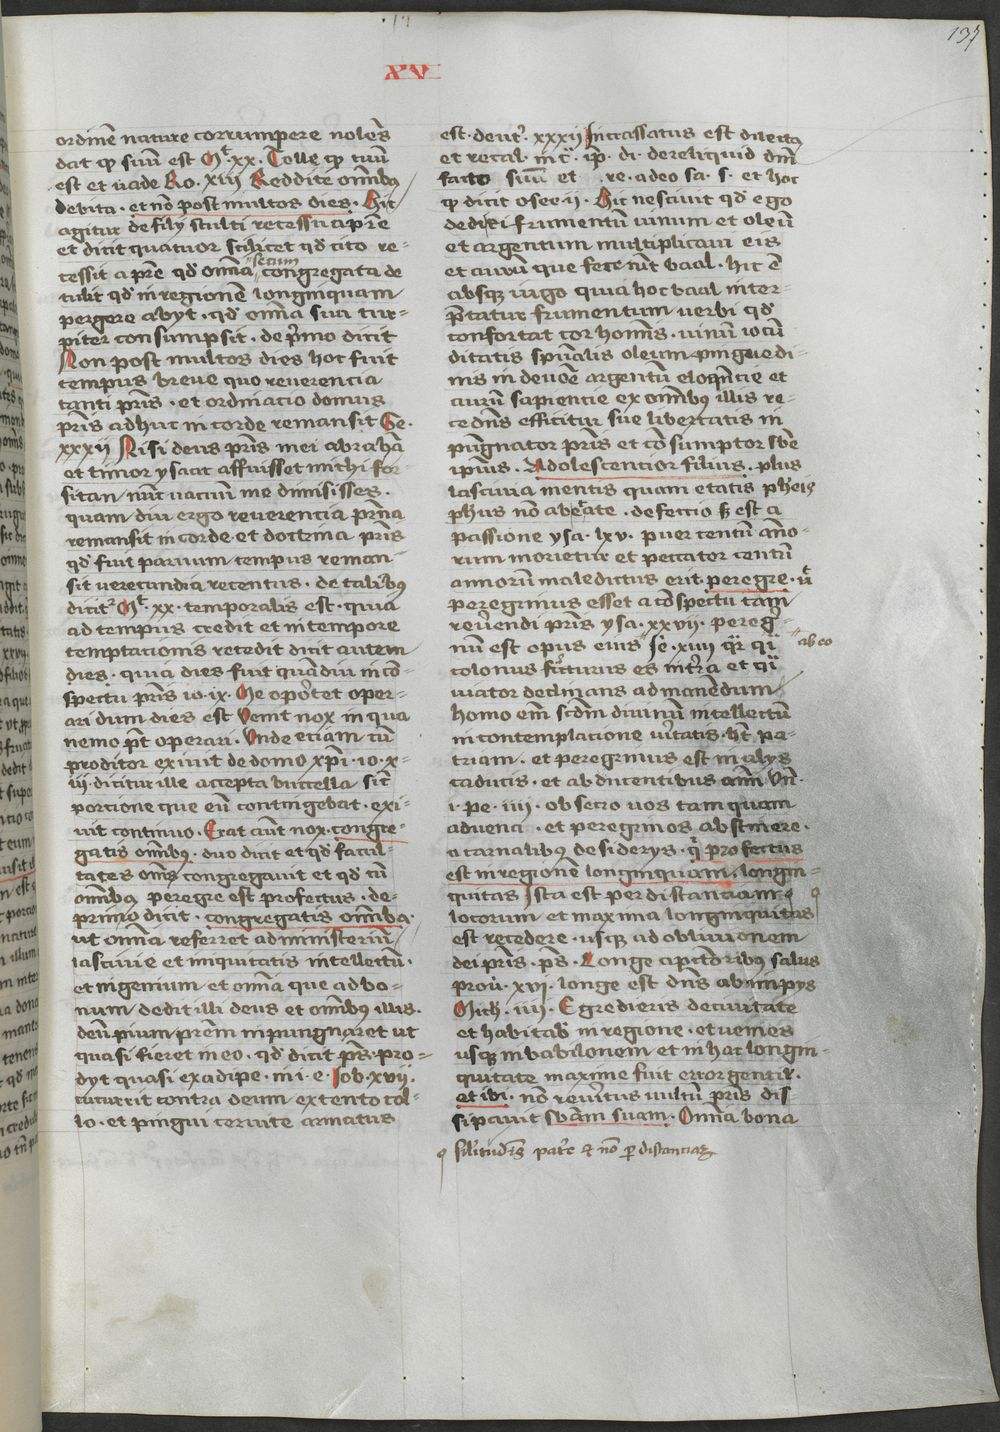 137
XV
ordinē nature corrumpere nolēs
dat qp suū est Mt XX. Tolle qp tuū
est et uade Ro. XIII Reddite omībꝰ
debita. et nō post multos dies. Hic
agitur de filij stulti recessu a pr̄e
et dicit quatuor scilicet qd' cito re-
cessit a pr̄e qd' omīa secum congregata de
tulit qd' in regionē longinquam
pergere abijt. qd' omīa sua tur-
piter consumpsit. de pͥmo dicit
Non post multos dies hoc fuit
tempus breue quo reuerencia
tanti pr̄is. et ordinacio domus
pr̄is adhuc in corde remansit Ge.
XXXII Nisi deus pr̄is mei abrahā
et timor ysaac affuisset michi for
sitan nūc uacuum me dimisisses.
quam diu ergo reuerencia pr̄na
remansit in corde et doctrina pr̄is
qd' fuit paruum tempus reman
sit uerecundia recentus. de talibꝰ
dicitʳ Mt. XX. temporalis est. quia
ad tempus credit et in tempore
temptacionis recedit dicit autem
dies. quia dies fuit quādiu in cō-
spectu pr̄is io. IX. Me oportet oper-
ari dum dies est Venit nox in qua
nemo pt̄ operari. Vnde eciam cū
proditor exiuit de domo xp̄i. io. x-
iii. dicitur ille accepta buccella sic̄
porcione que eū contingebat. exi-
uit continuo. Erat aūt nox. congre-
gatis omībꝰ. duo dicit et qd' facul-
tates om̄s congregauit et qd' cū
omībꝰ peregre est profectus. de-
primo dicit. congregatis omībꝰ.
ut omīa referret ad ministeriū
lasciuie et iniquitatis intellectū.
et ingenium et omīa que ad bo-
num dedit illi deus et omībꝰ illis.
deū pium pr̄em inpungnaret ut
quasi fieret in eo. qd' dicit ps̄. pro-
dijt quasi ex adipe. in. i. e. Iob. XVII.
cucurrit contra deum extento col-
lo. et pingui ceruice armatus
est. deut'. XXXII Incrassatus est dilectꝰ
et recal. int̄. ip̄. di. dereliquid dm̄
facto suū et re. a deo sa. s. et hoc
qp dicit osee ii. Hic nesciuit qd' ego
dedi ei frumentum uinum et oleū
et argentum multiplicaui eis
et aurū que fecerūt baal. hic ē
absqꝫ iugo quia hoc baal inter-
pretatur frumentum uerbi qd'
confortat cor hominis. uinū iocū
ditatis spūalis oleum pinguedi-
nis in deuoē argentū eloqn̄cie et
aurū sapiencie ex omībꝰ illis re-
ce dn̄s efficitur sue libertatis in
pūgnator pr̄is et cōsumptor sb̄e
ipsius. Adolescencior filius. plus
lasciuia mentis quam etatis
phus nō aberrate. defectio est a
passione ysa. LXV. puer centū āno-
rum morietur et peccator centū
annorū maledictus erit. peregre. ut
peregrinus esset a cōspectu tam
reuerendi pr̄is ysa. XXVII. peregͥ-
nū est opus eius ab eo Ie. XIIII qr qͥ
colonus futurus es in terra et qͥ
uiator declinans ad manēdum
homo em̄ scdm diuinū intellectū
in contemplacione ueritatis. ht̄ pa-
triam. et peregrinus est in alijs
caducis. et ab ducentibus
i. pe. IIII. obsecro uos tamquam
aduena. et peregrinos abstinere.
a carnalibus desiderijs. qͥ profectus
est in regionē longinquam. longin-
quitas Ista est per distanciam
locorum et maxima longinquitas
est recedere. usqꝫ ad obliuionem
dei pr̄is. ps̄. Longe a pccatoribꝰ salus
prou'. XVI. longe est dn̄s ab inpijs
Mich. IIII. Egredieris de ciuitate
et habitab' in regione. et uenies
usqꝫ in babilonem et in hac longin-
quitate maxime fuit error gentil'.
et ibi. nō reueritus uultū pr̄is dis
sipauit sb̄am suam. Omīa bona
silitudīs patͥe et nō p distanciaꝫ